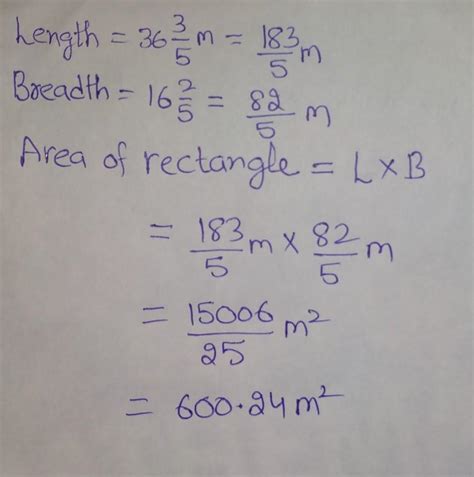 Length = 36 3/5 m = 183/5 m
Breadth = 16 2/5 = 82/5 m
Area of rectangle = L × B
= 183/5 m × 82/5 m
= 15006/25 m²
= 600.24 m²